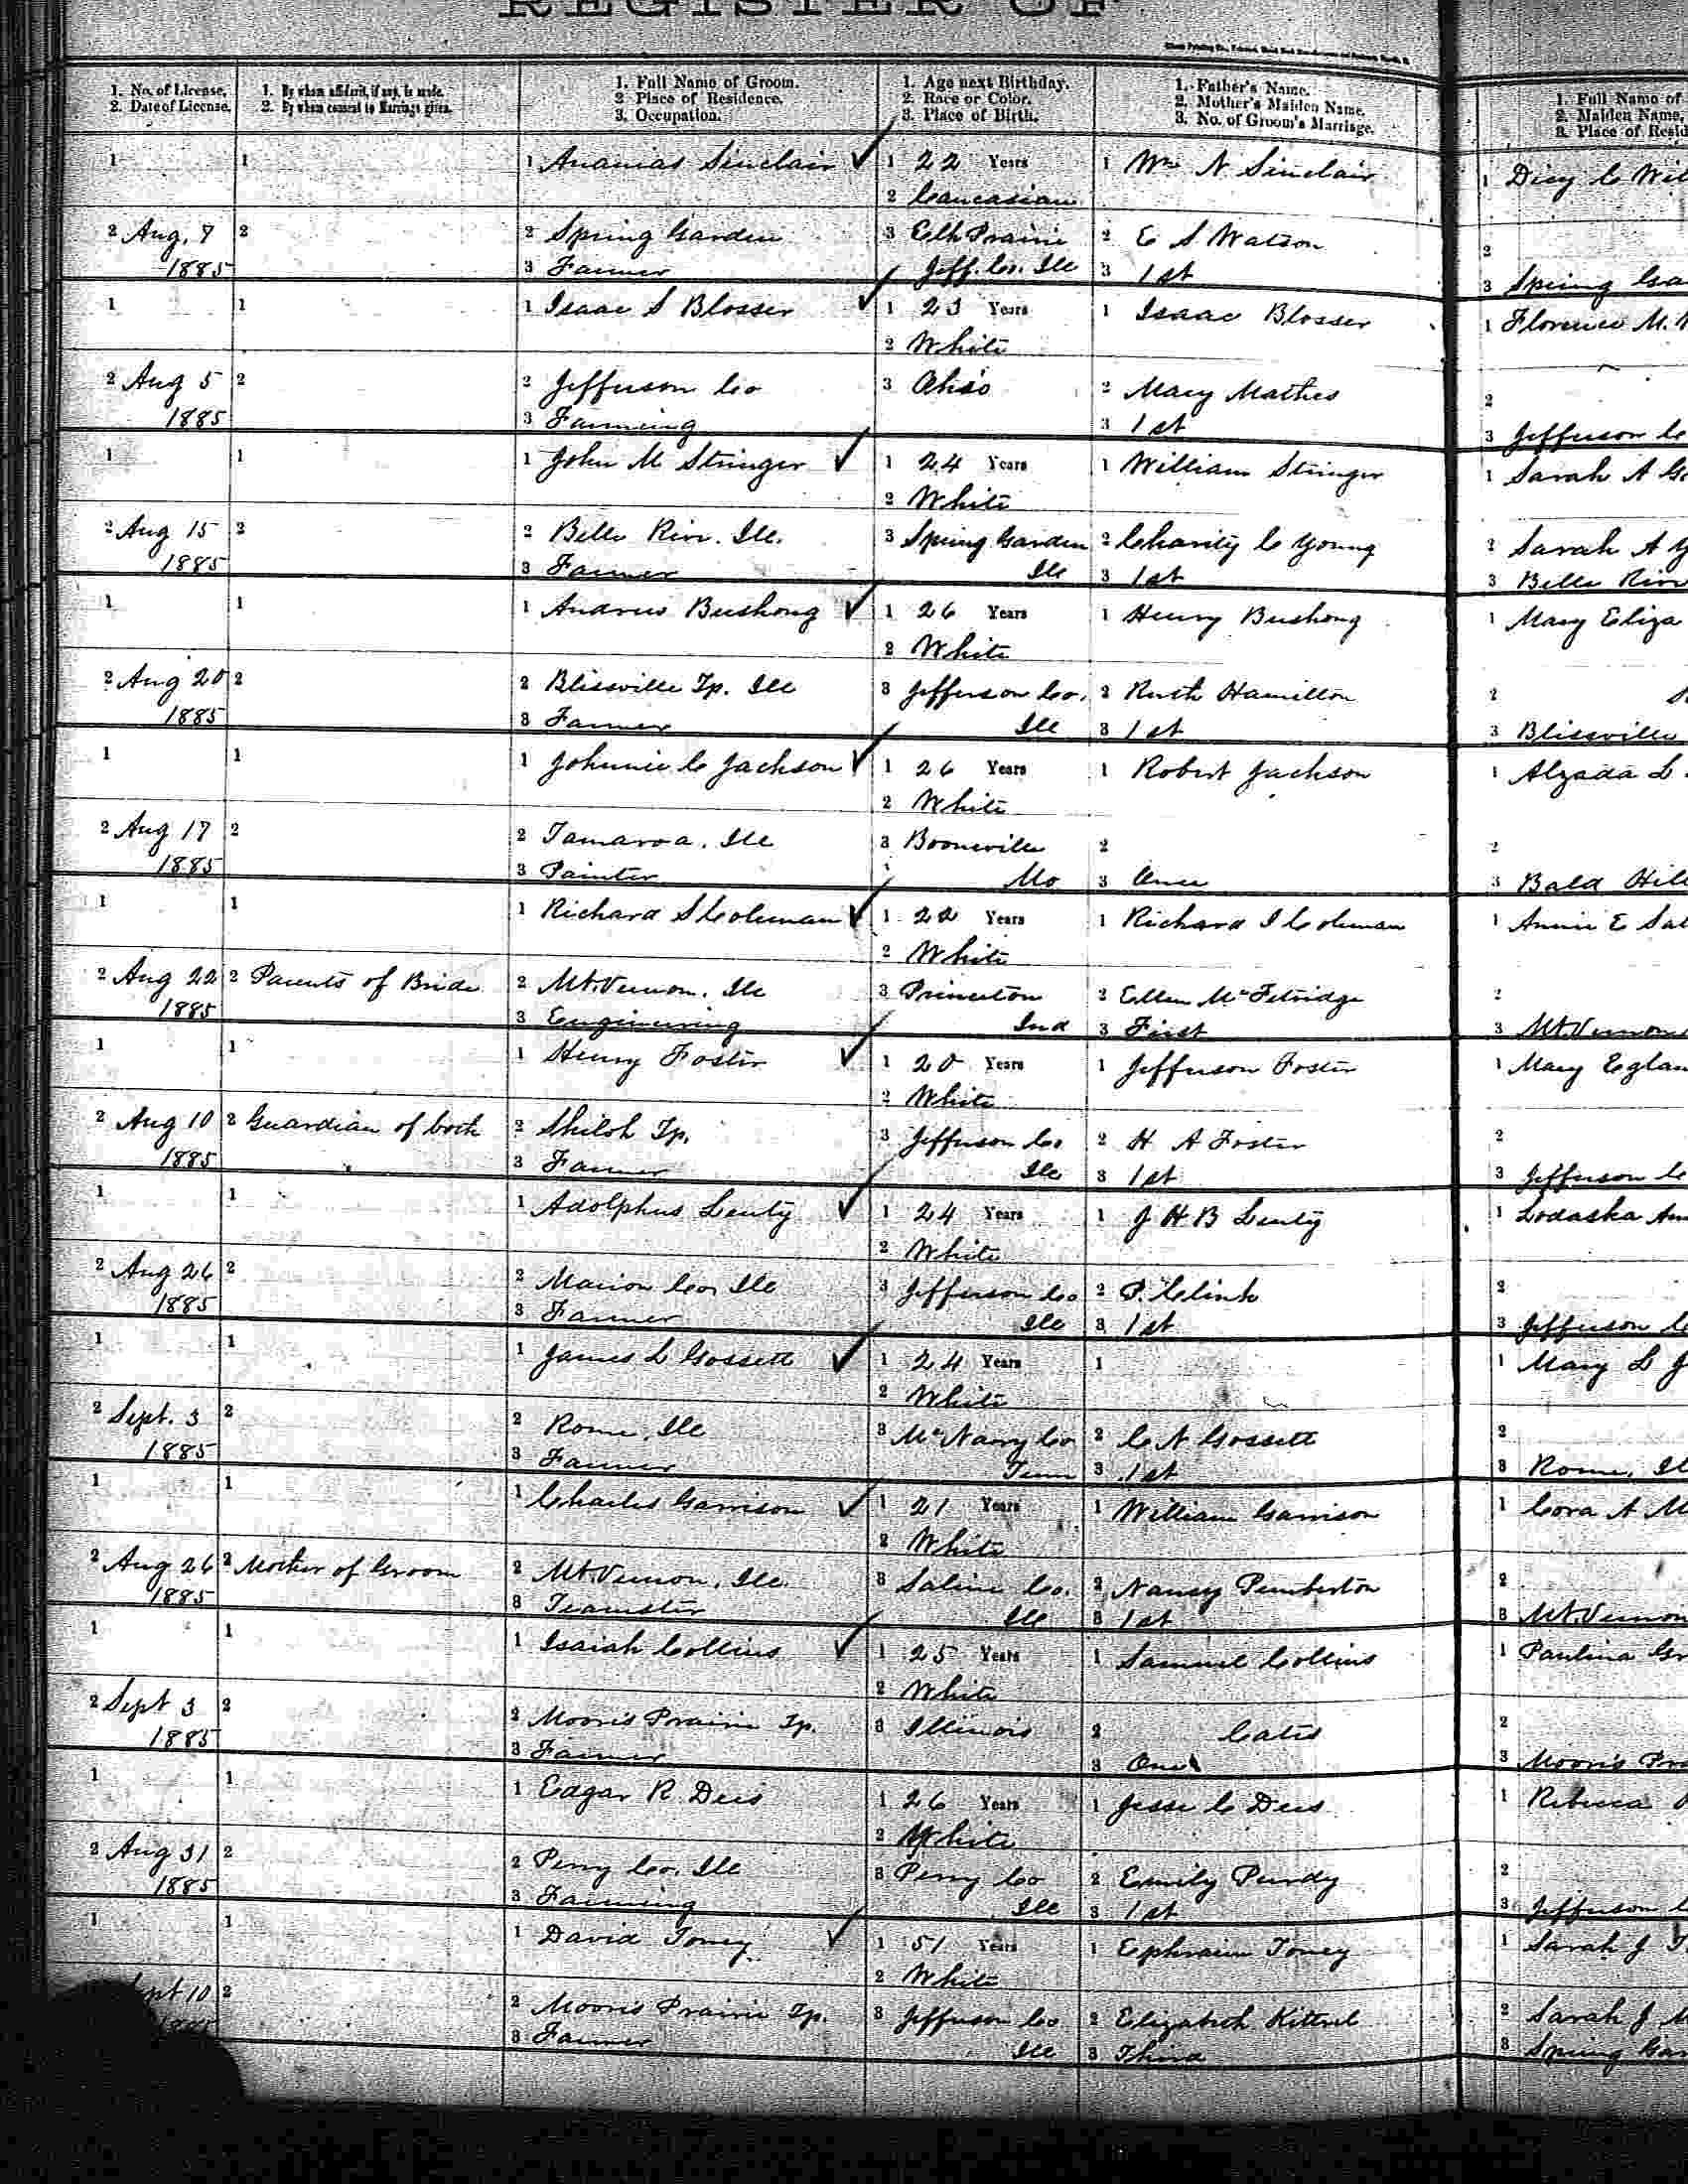 REGISTER OF
1. No. of License. 2. Date of License.
1. By whom affidavit, if any, is made. 2. By whom consent to Marriage given.
1. Full Name of Groom. 2 Place of Residence. 3. Occupation.
1. Age next Birthday. 2. Race or Color. 3. Place of Birth.
1. Father's Name. 2. Mother's Maiden Name. 3. No. of Groom's Marriage.
1. Full Name of 2. Maiden Name, 3. Place of Resid
1 1 1 Ananias Sinclair ✓ 1 22 Years 1 Wm N Sinclair 1 Dicy C Wil
2 Caucasian
2 Aug. 7 2 2 Spring Garden 3 Elk Prairie 2 E S Watson 2
1885 3 Farmer Jeff. Co. Ill 3 1st 3 Spring Ga
1 1 1 Isaac S Blosser ✓ 1 23 Years 1 Isaac Blosser 1 Florence M.
2 White
2 Aug 5 2 2 Jefferson Co 3 Ohio 2 Mary Mathes 2
1885 3 Farming 3 1st 3 Jefferson C
1 1 1 John M Stringer ✓ 1 24 Years 1 William Stringer 1 Sarah A G
2 White
2 Aug 15 2 2 Belle Rive. Ill. 3 Spring Garden 2 Charity C Young 2 Sarah A
1885 3 Farmer Ill 3 1st 3 Belle Rive
1 1 1 Andrew Bushong ✓ 1 26 Years 1 Henry Bushong 1 Mary Eliza
2 White
2 Aug 20 2 2 Blissville Tp. Ill 3 Jefferson Co. 2 Ruth Hamilton 2
1885 3 Farmer Ill 3 1st 3 Blissville
1 1 1 Johnnie C Jackson ✓ 1 26 Years 1 Robert Jackson 1 Alzada L
2 White
2 Aug 17 2 2 Tamaroa. Ill 3 Boonville 2 2
1885 3 Painter Mo 3 Once 3 Bald Hill
1 1 1 Richard S Coleman ✓ 1 22 Years 1 Richard I Coleman 1 Annie E Sal
2 White
2 Aug 22 2 Parents of Bride 2 Mt. Vernon. Ill 3 Princeton 2 Ellen McFetridge 2
1885 3 Engineering Ind 3 First 3 Mt. Vernon
1 1 1 Henry Foster ✓ 1 20 Years 1 Jefferson Foster 1 Mary Eglan
2 White
2 Aug 10 2 Guardian of both 2 Shiloh Tp. 3 Jefferson Co 2 H A Foster 2
1885 3 Farmer Ill 3 1st 3 Jefferson C
1 1 1 Adolphus Lenty ✓ 1 24 Years 1 J H B Lenty 1 Lodaska An
2 White
2 Aug 26 2 2 Marion Co. Ill 3 Jefferson Co 2 P. Clink 2
1885 3 Farmer Ill 3 1st 3 Jefferson C
1 1 1 James L Gossett ✓ 1 24 Years 1 1 Mary L J
2 White
2 Sept. 3 2 2 Rome, Ill 3 McNary Co 2 C N Gossett 2
1885 3 Farmer Tenn 3 1st 3 Rome, Il
1 1 1 Charles Garrison ✓ 1 21 Years 1 William Garrison 1 Cora A M
2 White
2 Aug 26 2 Mother of Groom 2 Mt. Vernon, Ill. 3 Saline Co. 2 Nancy Pemberton 2
1885 3 Teamster Ill 3 1st 3 Mt. Vernon
1 1 1 Isaiah Collins ✓ 1 25 Years 1 Samuel Collins 1 Paulina Gr
2 White
2 Sept 3 2 2 Moores Prairie Tp. 3 Illinois 2 Cates 2
1885 3 Farmer 3 One 3 Moores Pra
1 1 1 Edgar R Dees 1 26 Years 1 Jesse C Dees 1 Rebecca
2 White
2 Aug 31 2 2 Perry Co. Ill 3 Perry Co 2 Emily Purdy 2
1885 3 Farming Ill 3 1st 3 Jefferson C
1 1 1 David Toney ✓ 1 51 Years 1 Ephraim Toney 1 Sarah J T
2 White
Sept 10 2 2 Moores Prairie Tp. 3 Jefferson Co 2 Elizabeth Kittrel 2 Sarah J M
1885 3 Farmer Ill 3 Third 3 Spring Gar